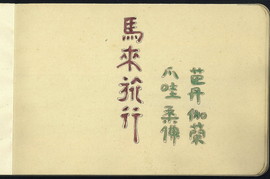 芭丹 伽榮
爪哇 柔佛
馬來旅行